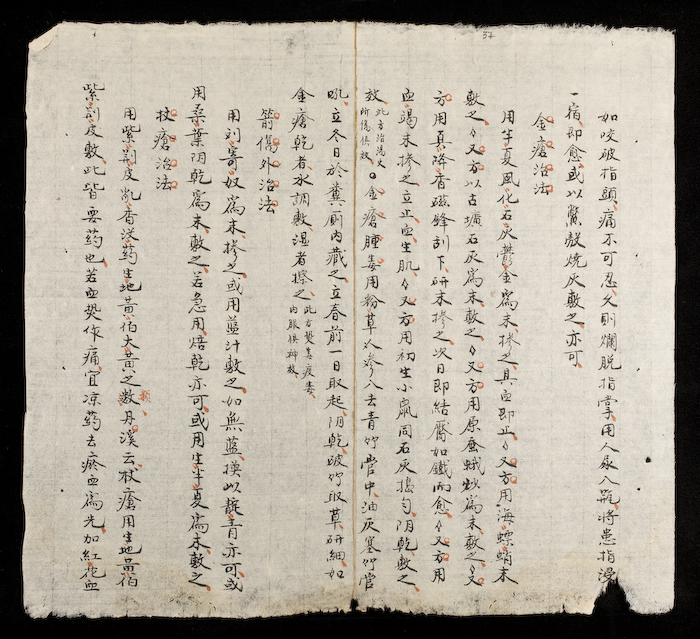 37
如咬破指頭痛不可忍久則爛脫指掌用人尿入瓶將患指浸
一宿即愈或以鱉殼燒灰敷之亦可
金瘡治法
用半夏風化石灰鬱金為末摻之其血即止〻又方用海螵蛸末
敷之〻又方以古壙石灰為末敷之〻又方用原蚕蛾炒為末敷之〻又
方用真降香磁鋒刮下研末摻之次日即結靨如鐵而愈〻又方用
血竭末摻之立止血生肌〻又方用初生小鼠同石灰搗勻阴乾敷之
效此方治湯火所傷俱效〇金瘡腫毒用粉草入去青竹管中油灰塞竹管
吼立冬日於糞厠內藏之立春前一日取起阴乾破竹取草研細如
金瘡乾者水調敷湿者摻之此方發毒疫毒內服俱神效
箭傷外治法
用刘寄奴為末摻之或用藍汁敷之如無藍澱以靛青亦可或
用桑葉阴乾為末敷之若急用焙乾亦可或用生半夏為末敷之
杖瘡治法
用紫荊皮乳香沒药生地黃伯大黃之類丹溪云杖瘡用生地黃伯
紫荊皮敷此皆要药也若血熱作痛宜凉药去瘀血為先加紅花血